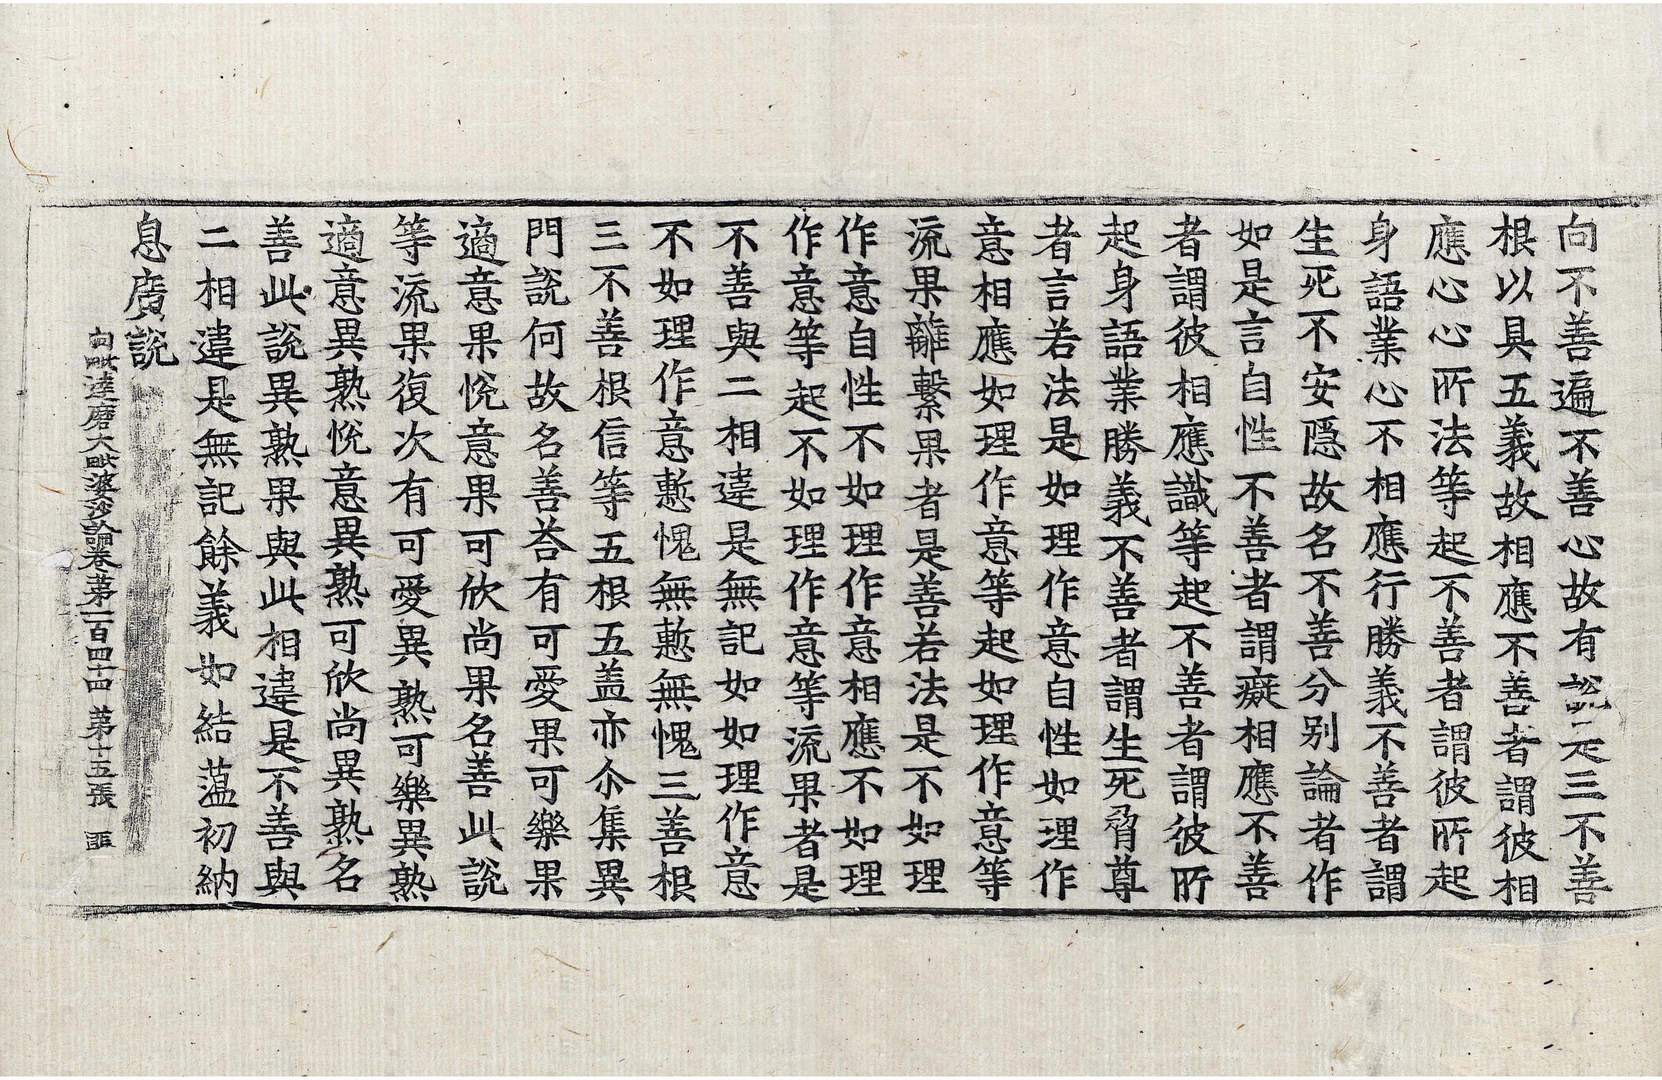 向不善遍不善心故有說是三不善
根以具五義故相應不善者謂彼相
應心心所法等起不善者謂彼所起
身語業心不相應行勝義不善者謂
生死不安隱故名不善分別論者作
如是言自性不善者謂癡相應不善
者謂彼相應識等起不善者謂彼所
起身語業勝義不善者謂生死脅尊
者言若法是如理作意自性如理作
意相應如理作意等起如理作意等
流果離繫果者是善若法是不如理
作意自性不如理作意相應不如理
作意等起不如理作意等流果者是
不善與二相違是無記如如理作意
不如理作意慙愧無慙無愧三善根
三不善根信等五根五盖亦尒集異
門說何故名善荅有可愛果可樂果
適意果悅意果可欣尚果名善此說
等流果復次有可愛異熟可樂異熟
適意異熟悅意異熟可欣尚異熟名
善此說異熟果與此相違是不善與
二相違是無記餘義如結薀初納
息廣說
向毗達磨大毗婆沙論卷第一百四十四 第十五張 匪